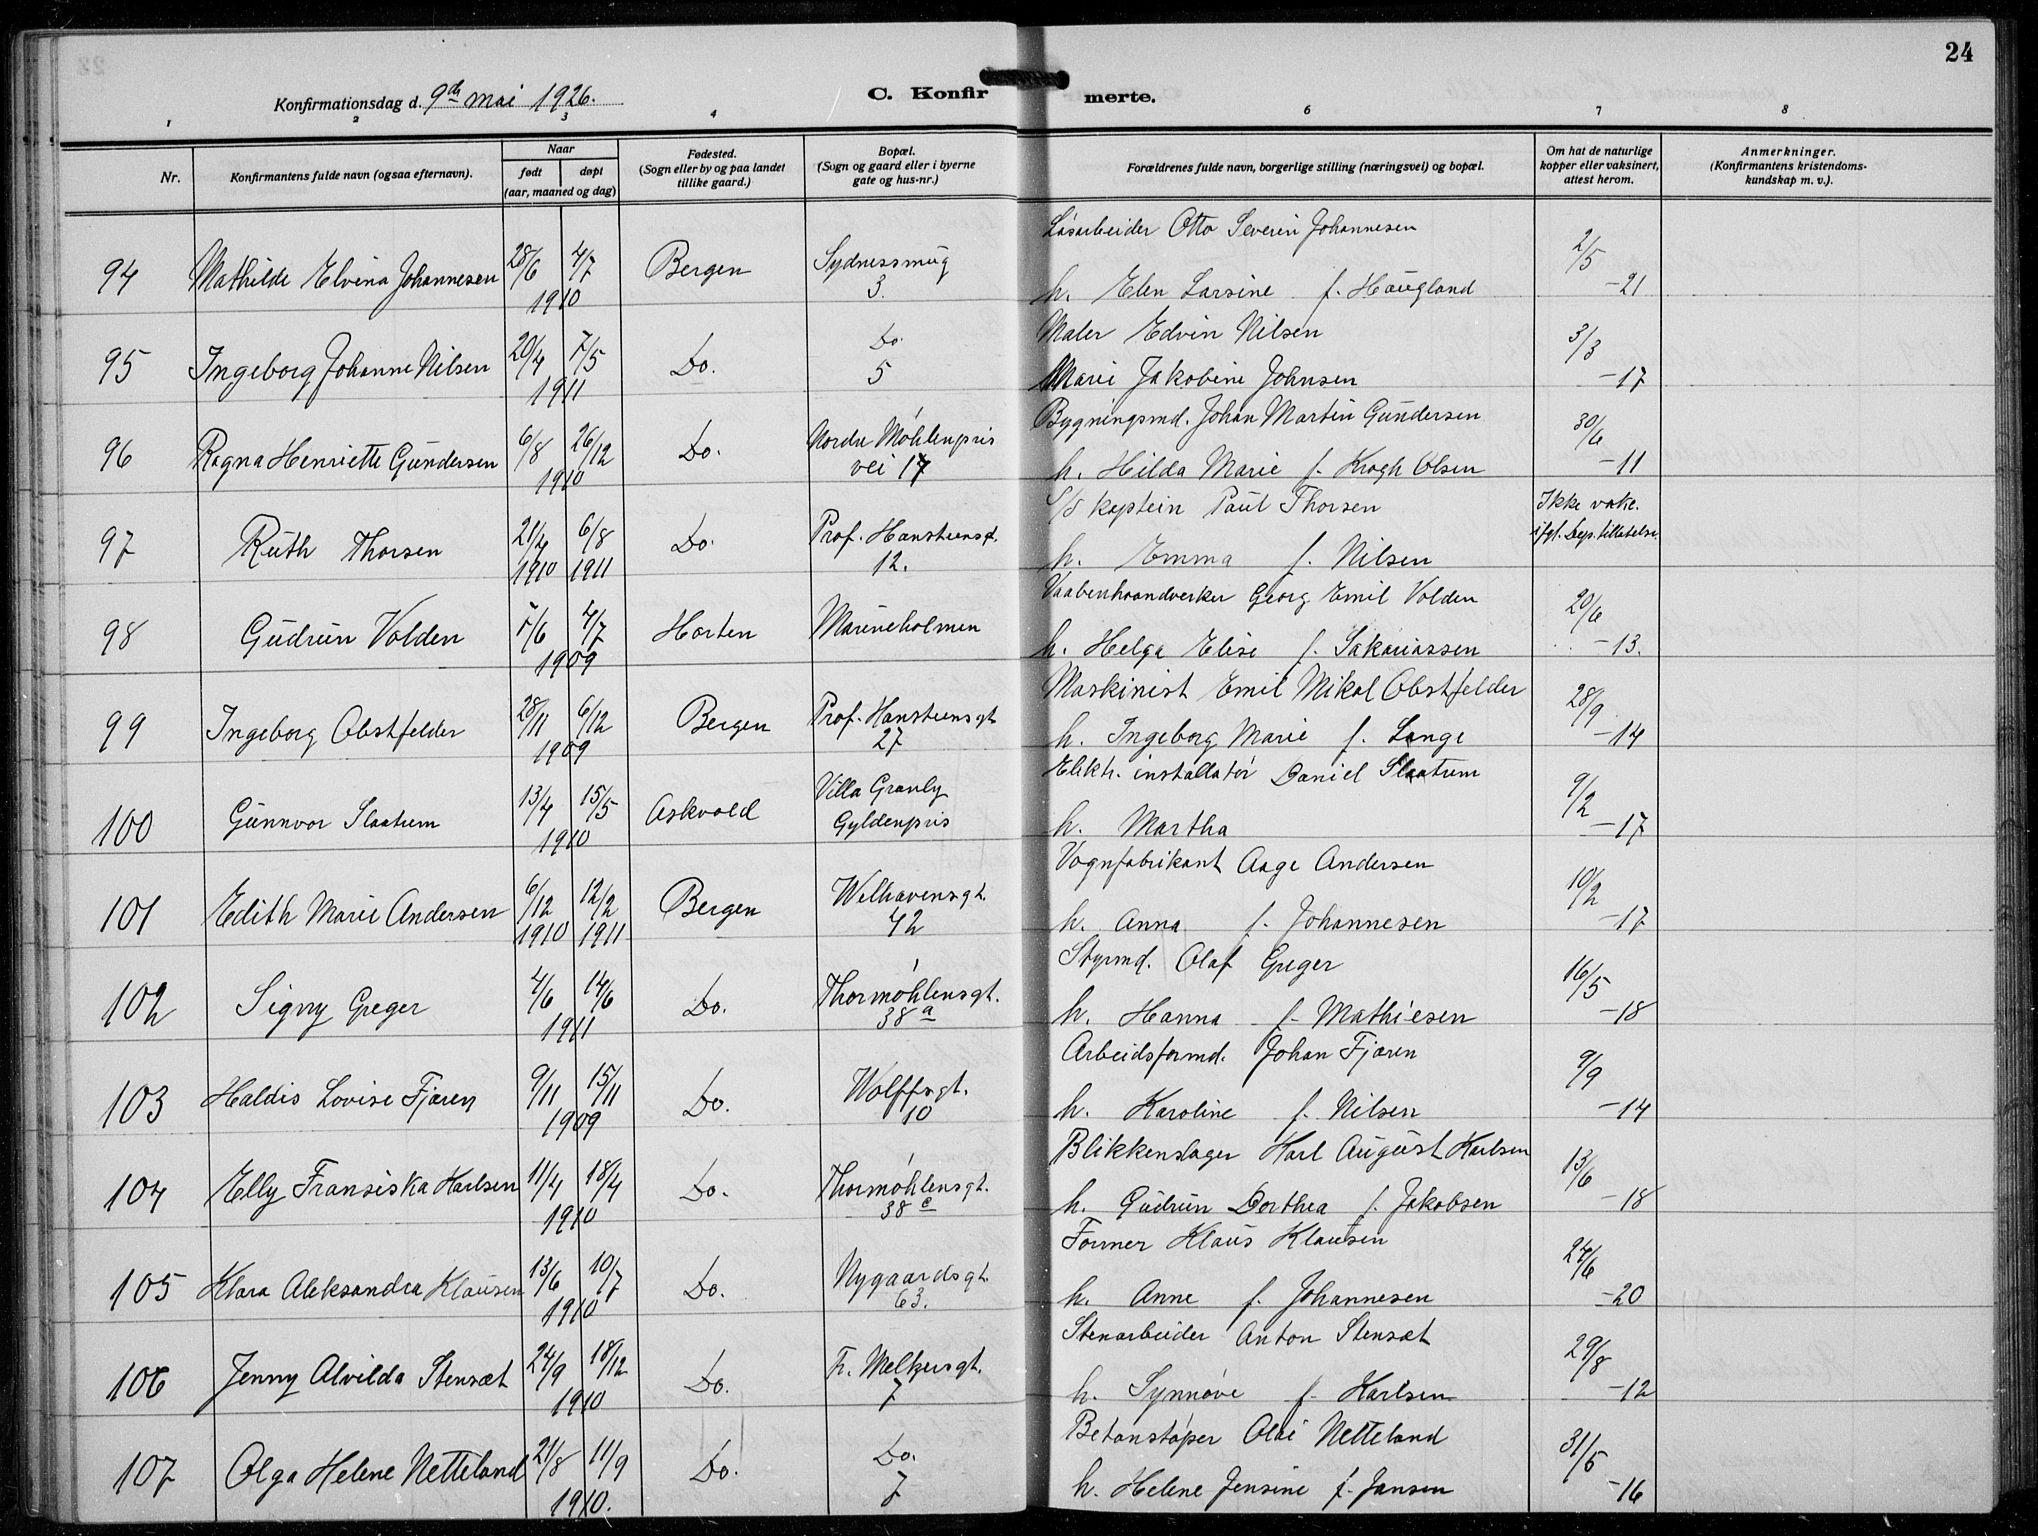 24
Konfirmationsdag d. 9de mai 1926.
C. Konfir merte.
1 2 3 4 6 7 8
Nr.
Konfirmantens fulde navn (ogsaa efternavn).
Naar
født døpt
(aar, maaned og dag)
Fødested.
(Sogn eller by og paa landet
tillike gaard.)
Bopæl.
(Sogn og gaard eller i byerne
gate og hus-nr.)
Forældrenes fulde navn, borgerlige stilling (næringsvei) og bopæl.
Om hat de naturlige
kopper eller vaksinert,
attest herom.
Anmerkninger.
(Konfirmantens kristendoms-
kundskap m. v.).
Løsarbeider Otto Severin Johannesen
94 Mathilde Elvina Johannesen 28/6 4/7 Bergen Sydnessmug 2/5
1910 3. h. Elen Larsine f. Haugland -21
Maler Edvin Nilsen
95 Ingeborg Johanne Nilsen 20/4 7/5 Do. Do. 3/3
1911 5 Marie Jakobine Johnsen -17
Bygningsmd. Johan Martin Gundersen
96 Ragna Henriette Gundersen 6/8 26/12 Do. Nordre Møhlenpris 30/6
1910 vei 17 h. Hilda Marie f. Krogh Olsen -11
S/S kaptein Paul Thorsen Ikke vakc.
97 Ruth Thorsen 21/4 6/8 Do. Prof. Hansteensgt. ifgl. Dep. tillatelse.
1910 1911 12. h. Emma f. Nilsen
Vaabenhaandverker Georg Emil Volden
98 Gudrun Volden 7/6 4/7 Horten Marineholmen 20/6
1909 h. Helga Elise f. Sakariassen -13.
Maskinist Emil Mikal Obstfelder
99 Ingeborg Obstfelder 28/11 6/12 Bergen Prof. Hansteensgt 28/9
1909 27 h. Ingeborg Marie f. Lange -14
Elektr. installatør Daniel Slaatrem
100 Gunnvor Slaatrem 13/4 15/5 Askvold Villa Granly 9/2
1910 Gyldenpris h. Martha -17
Vognfabrikant Aage Andersen
101 Edith Marie Andersen 6/12 12/2 Bergen Welhavensgt. 10/2
1910 1911 42 h. Anna f. Johannesen -17
Styrmd. Olaf Greger
102 Signy Greger 4/6 14/6 Do. Thormøhlensgt. 16/5
1911 38a h. Hanna f. Mathiesen -18
Arbeidsformd. Johan Fjæren
103 Haldis Lovise Fjæren 9/11 15/11 Do. Wolffsgt. 9/9
1909 10 h. Karoline f. Nilsen -14
Blikkenslager Karl August Karlsen
104 Elly Fransiska Karlsen 11/4 18/4 Do. Thormøhlensgt. 13/6
1910 38c h. Gudrun Dorthea f. Jakobsen -18
Former Klaus Klausen
105 Klara Aleksandra Klausen 13/6 10/7 Do. Nygaardsgt. 24/6
1910 63. h. Anne f. Johannesen -20
Stenarbeider Anton Stensæt
106 Jenny Alvilda Stensæt 24/9 18/12 Do. Fr. Melkersgt. 29/8
1910 7 h. Synnøve f. Karlsen -12
Betonstøper Olai Netteland
107 Olga Helene Netteland 21/8 11/9 Do. Do. 31/5
1910. 7 h. Helene Jensine f. Jansen -16